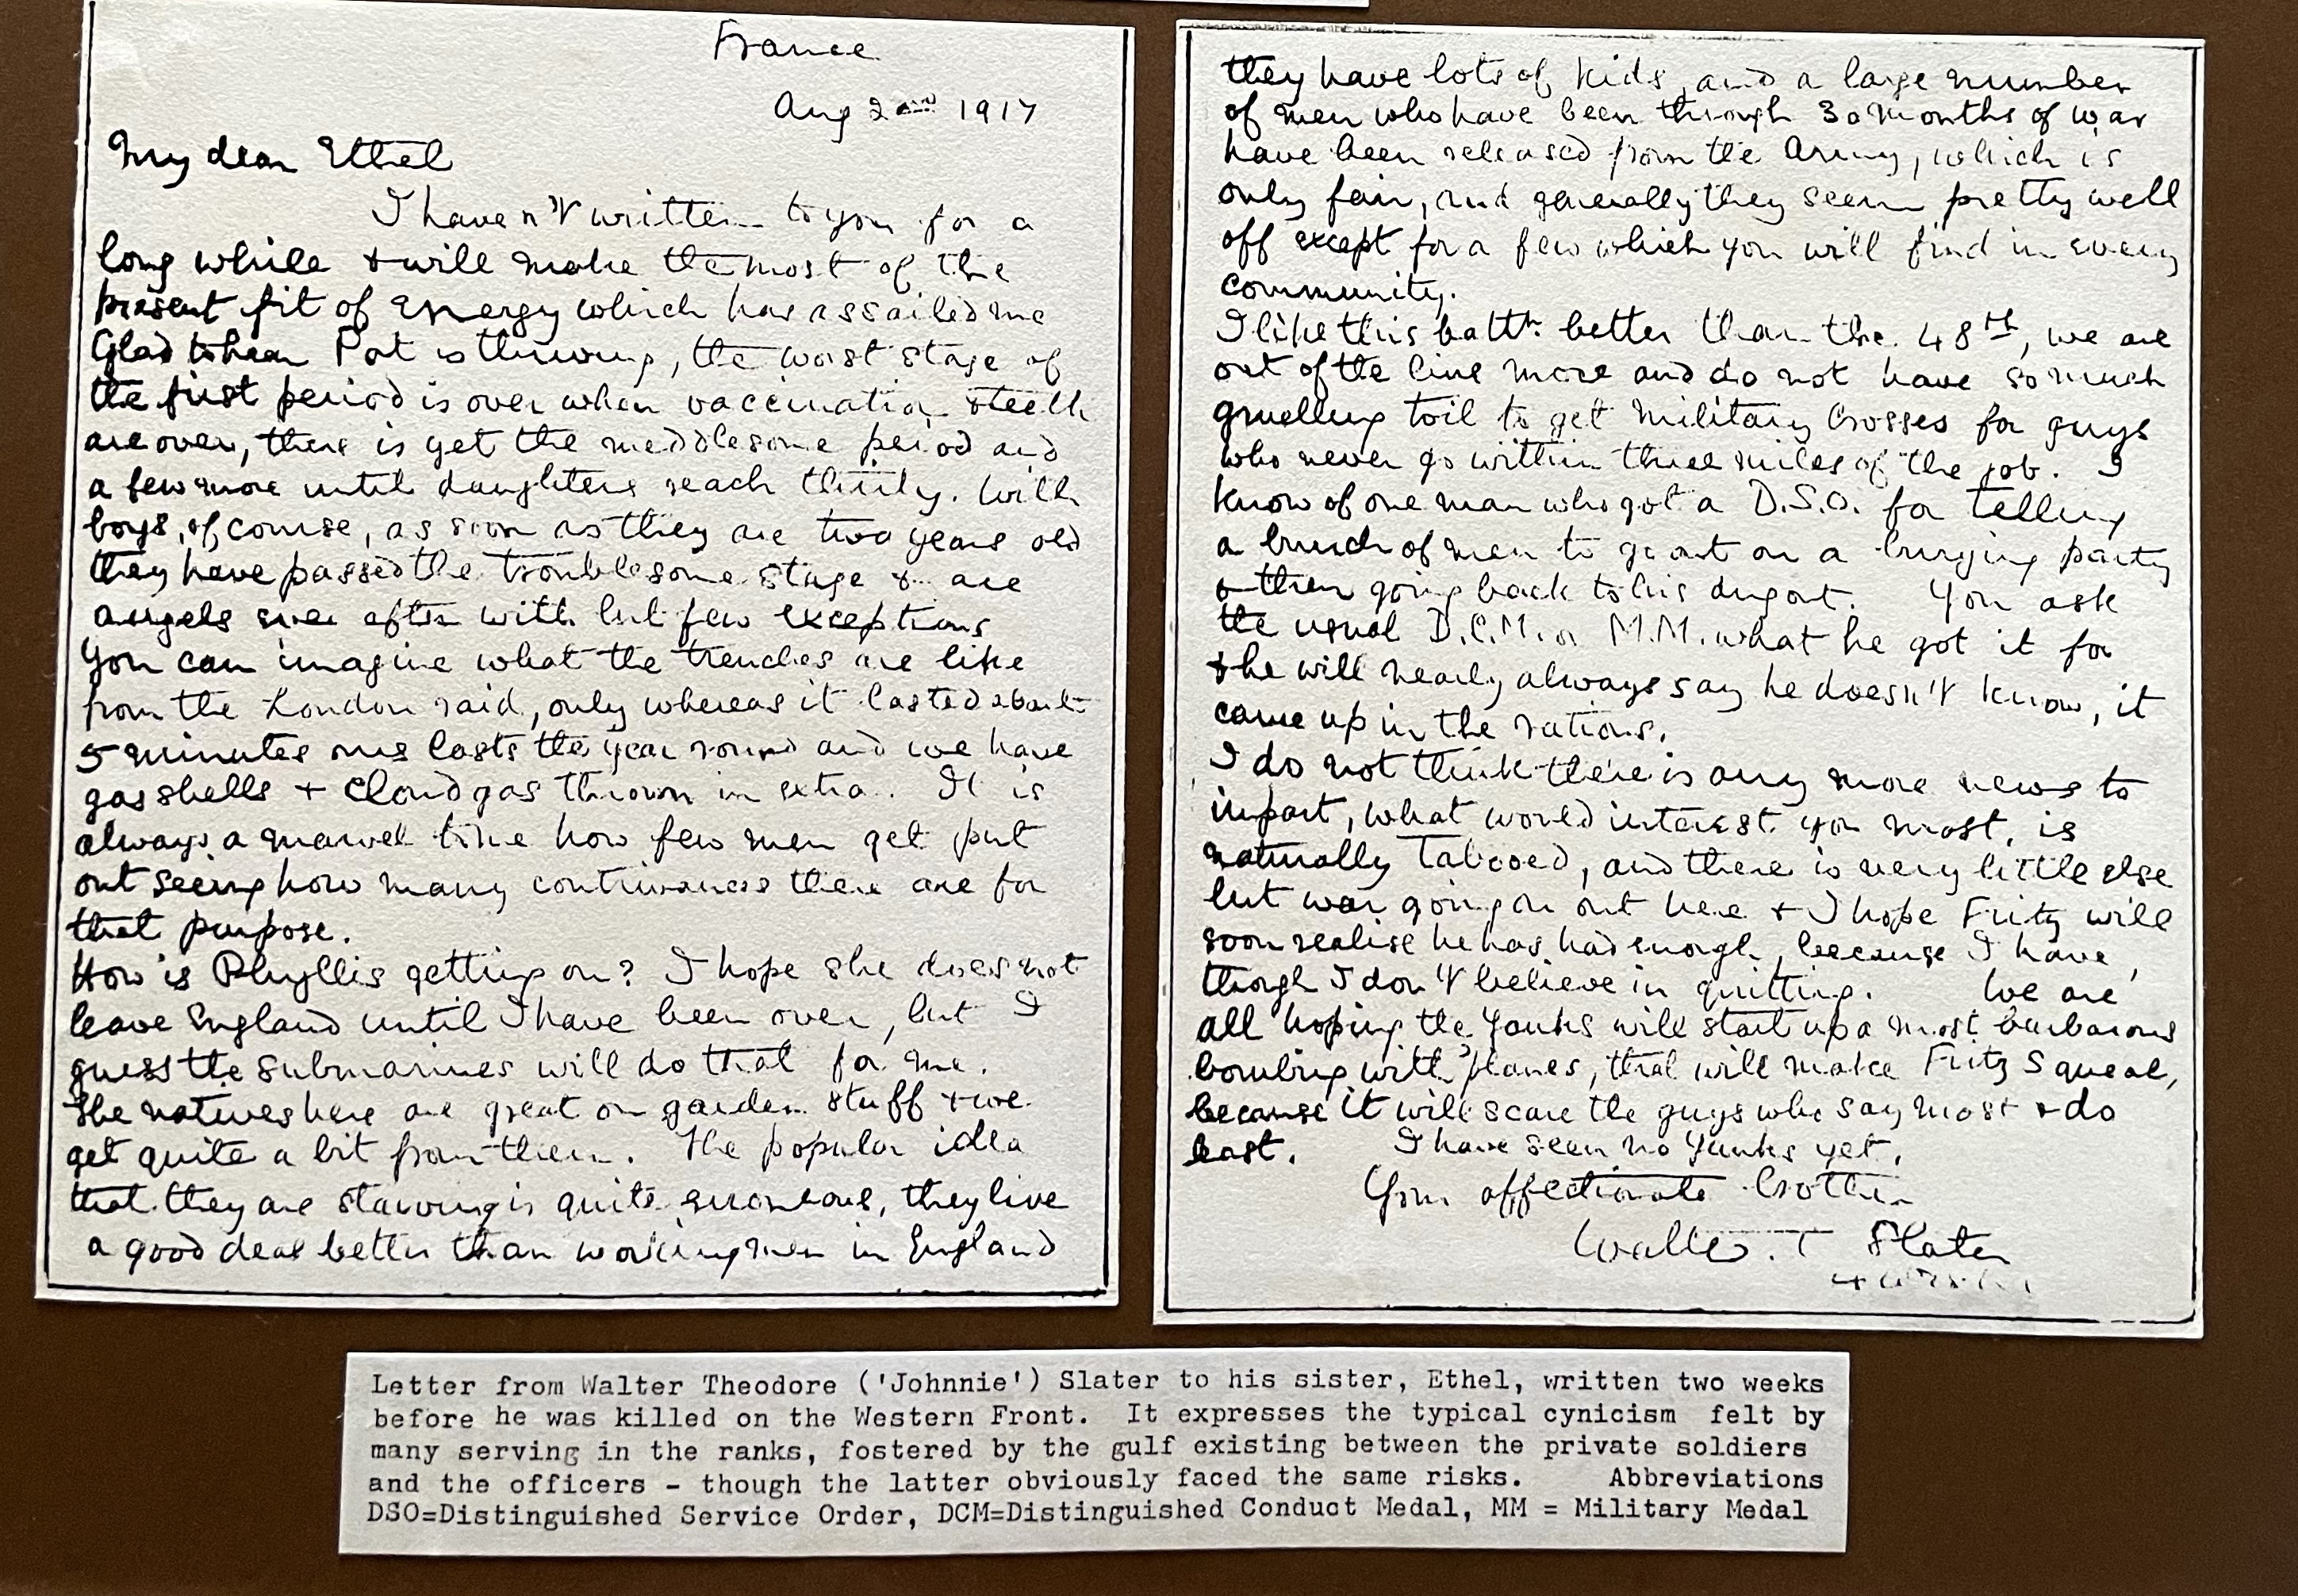 France
Aug 2nd 1917
My dear Ethel
I haven't written to you for a
long while & will make the most of the
present fit of energy which has assailed me
Glad to hear Pat is thriving, the worst stage of
the first period is over when vaccination & teeth
are over, there is yet the meddlesome period and
a few more until daughters reach thirty. With
boys, of course, as soon as they are two years old
they have passed the troublesome stage & are
angels ever after with but few exceptions
You can imagine what the trenches are like
from the London raid, only whereas it lasted about
5 minutes ours lasts the year round and we have
gas shells + cloud gas thrown in extra. It is
always a marvel to me how few men get put
out seeing how many contrivances there are for
that purpose.
How is Phyllis getting on? I hope she does not
leave England until I have been over, but I
guess the submarines will do that for me.
The natives here are great on garden stuff & we
get quite a bit from them. The popular idea
that they are starving is quite erroneous, they live
a good deal better than working men in England
they have lots of kids, and a large number
of men who have been through 30 months of war
have been released from the Army, which is
only fair, and generally they seem pretty well
off except for a few which you will find in every
community.
I like this battn. better than the 48th, we are
out of the line more and do not have so much
gruelling toil to get Military Crosses for guys
who never go within three miles of the job. I
know of one man who got a D.S.O. for telling
a bunch of men to go out on a burying party
& then going back to his dugout. You ask
the usual D.C.M. or M.M. what he got it for
& he will nearly always say he doesn't know, it
came up in the rations.
I do not think there is any more news to
impart, what would interest you most, is
naturally tabooed, and there is very little else
but war going on out here & I hope Fritz will
soon realise he has had enough, because I have,
though I don't believe in quitting. We are
all hoping the Yanks will start up a most barbarous
bombing with 'planes, that will make Fritz squeal,
because it will scare the guys who say most & do
least. I have seen no Yanks yet.
Your affectionate brother
Walter. T Slater
Letter from Walter Theodore ('Johnnie') Slater to his sister, Ethel, written two weeks
before he was killed on the Western Front. It expresses the typical cynicism felt by
many serving in the ranks, fostered by the gulf existing between the private soldiers
and the officers - though the latter obviously faced the same risks. Abbreviations
DSO=Distinguished Service Order, DCM=Distinguished Conduct Medal, MM = Military Medal